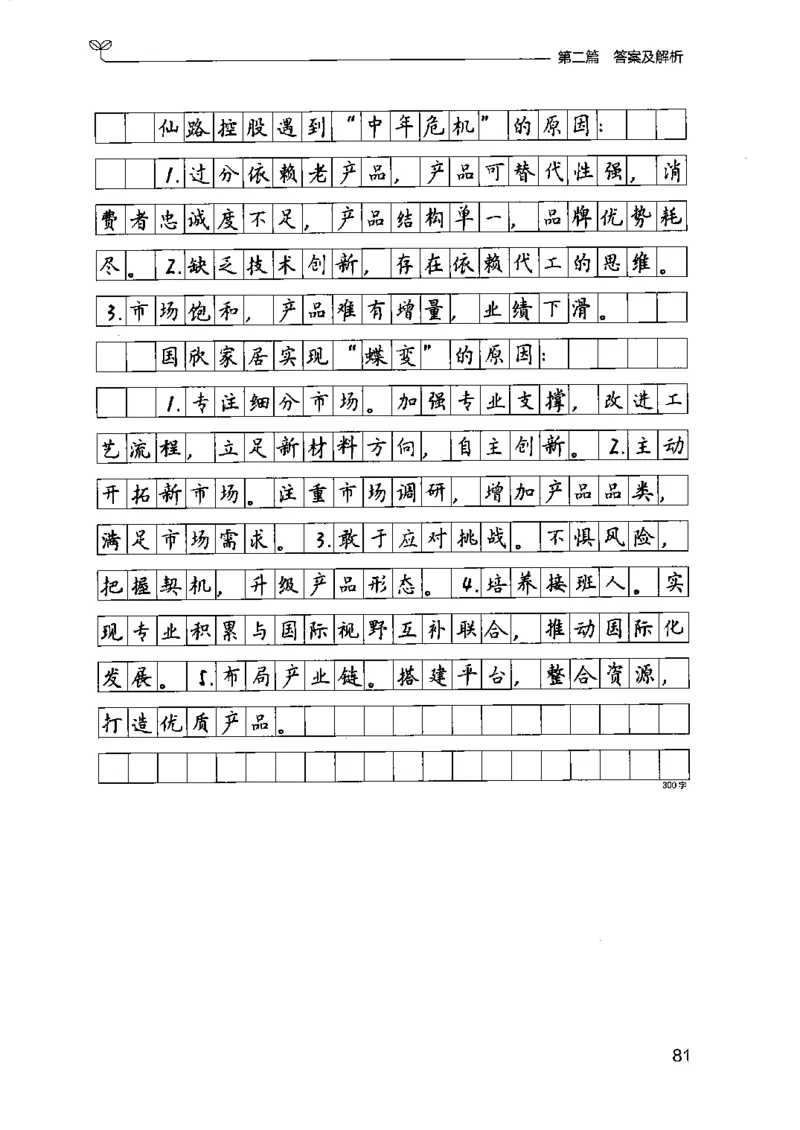 第二篇 答案及解析
仙路控股遇到“中年危机”的原因：
1.过分依赖老产品，产品可替代性强，消
费者忠诚度不足，产品结构单一，品牌优势耗
尽。2.缺乏技术创新，存在依赖代工的思维。
3.市场饱和，产品难有增量，业绩下滑。
国欣家居实现“蝶变”的原因：
1.专注细分市场。加强专业支撑，改进工
艺流程，立足新材料方向，自主创新。2.主动
开拓新市场。注重市场调研，增加产品品类，
满足市场需求。3.敢于应对挑战。不惧风险，
把握契机，升级产品形态。4.培养接班人。实
现专业积累与国际视野互补联合，推动国际化
发展。5.布局产业链。搭建平台，整合资源，
打造优质产品。
300字
81